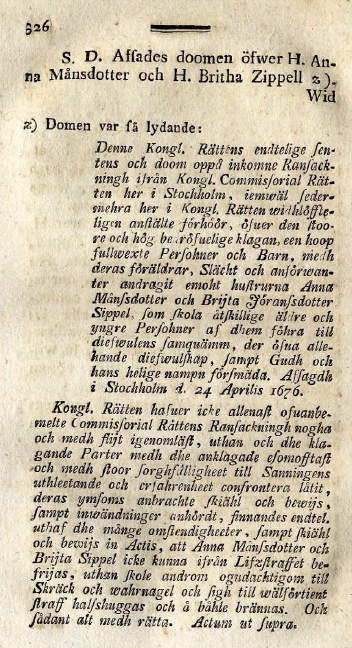 326
S. D. Assades doomen öfwer H. An-
na Månsdotter och H. Britha Zippell z).
Wid
z) Domen var så lydande:
Denne Kongl. Rättens endtelige sen-
tens och doom oppå inkomne Ransack-
ningh ifrån Kongl. Commissorial Rät-
ten her i Stockholm, iemwäl seder-
mehra her i Kongl. Rätten widhlöffte-
ligen anstälte förhöör, öfuer den stoo-
re och hög beröfuelige klagan, een hoop
fullwexte Persohner och Barn, medh
deras föräldrar, Slächt och anförwan-
ter andragit emoht hustrurna Anna
Månssdotter och Brijta Jöranssdotter
Sippel, som skola åtskillige äldre och
yngre Persohner af dhem föhra till
diefwulens samquämm, der öfua alle-
hande diefwulskap, sampt Gudh och
hans helige nampn försmäda. Afsagdh
i Stockholm d. 24 Aprilis 1676.
Kongl. Rätten hafuer icke allenast ofuanbe-
melte Commissorial Rättens Ransackningh nogha
och medh flijt igenomläst, uthan och dhe kla-
gande Parter medh dhe anklagade esomofftast
och medh stoor sorghfälligheet till Sanningens
uthleetande och erfahrenheet confrontera låtit,
deras ymsoms anbrachte skiähl och bewijs,
sampt inwändninger anhördt, finnandes endtel.
uthaf dhe månge omstendigheeter, sampt skiähl
och bewijs in Actis, att Anna Månssdotter och
Brijta Sippel icke kunna ifrån Lifzstraffet be-
frijas, uthan skole androm ogudachtigom till
Skräck och wahrnagel och sigh till wälförtient
straff halshuggas och å båhle brännas. Och
sådant alt medh rätta. Actum ut supra.